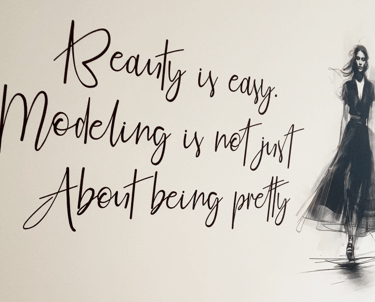 Beauty is easy.
Modeling is not just
About being pretty